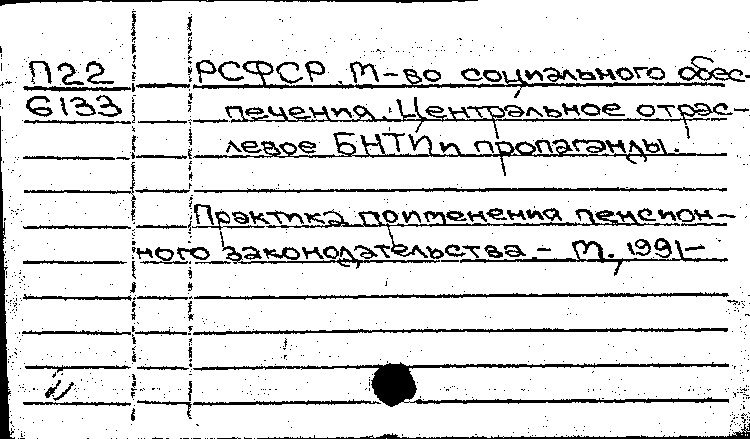 П22 РСФСР. М-во социального обес-
6133 печения. Центральное отрас-
левое БНТИ и пропаганды.
Практика применения пенсион-
ного законодательства. - М., 1991-